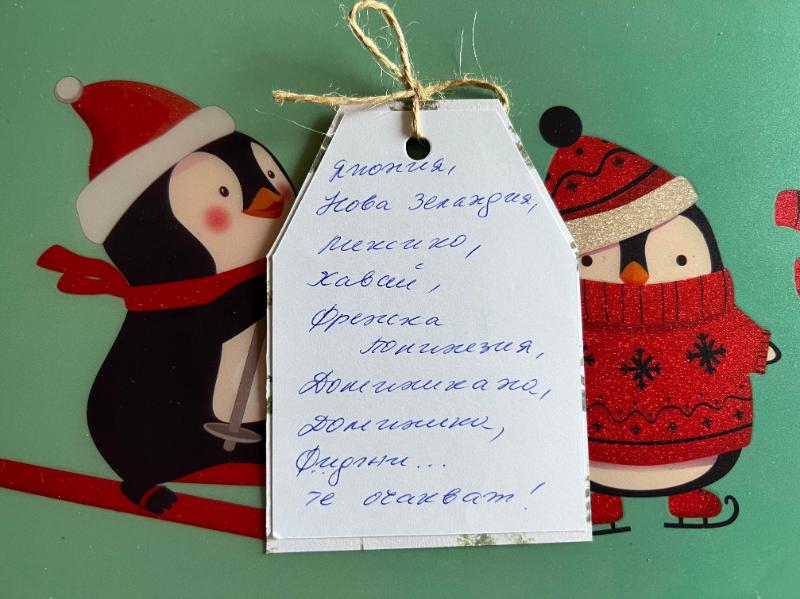 Япония,
Нова Зеландия,
Мексико,
Хавай,
Френска
Полинезия,
Доминикана,
Доминика,
Фиджи...
те очакват!